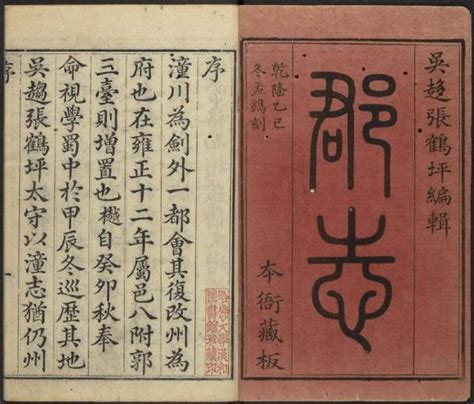 吳趍張鶴坪編輯
郡志
夲衙藏板
乾隆乙巳
冬孟鐫刻
序
潼川為劍外一都會其復改州為
府也在雍正十二年屬邑八附郭
三臺則增置也樾自癸卯秋奉
命視學蜀中於甲辰冬巡歷其地
吳趨張鶴坪太守以潼志猶仍州
序
哈佛大學漢和
圖書館珍藏印